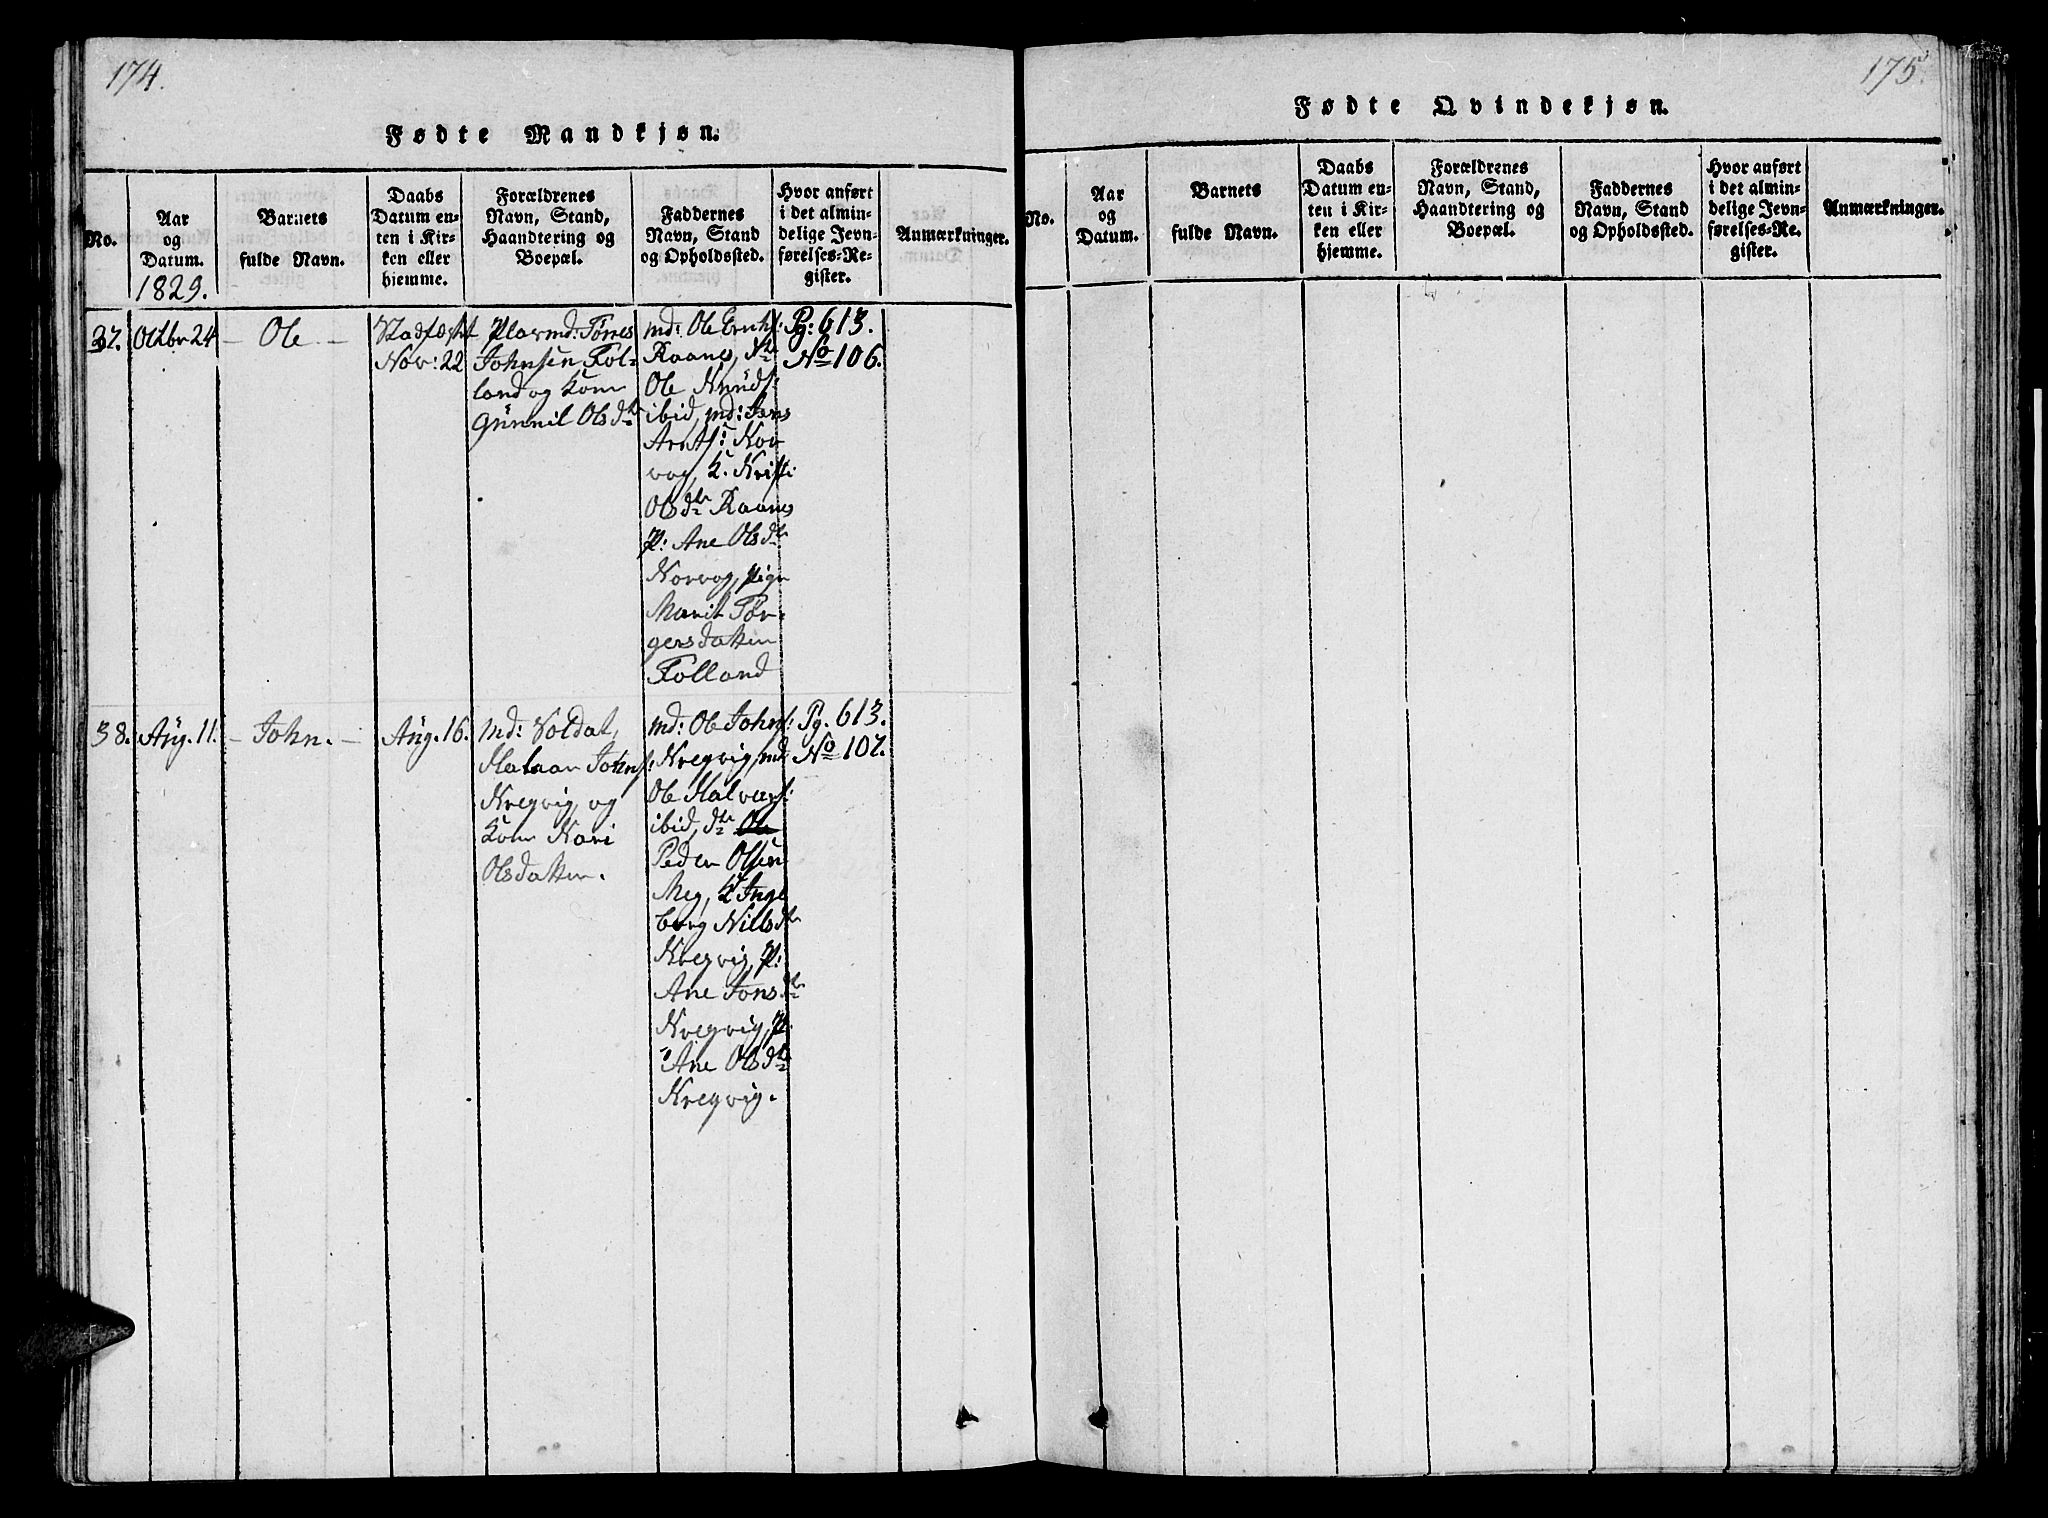 174.
Fødte Mandkjøn.
No.
Aar
og
Datum.
1829.
Barnets
fulde Navn.
Daabs
Datum en-
ten i Kir-
ken eller
hjemme.
Forældrenes
Navn, Stand,
Haandtering og
Boepæl.
Faddernes
Navn, Stand
og Opholdssted.
Hvor anført
i det almin-
delige Jevn-
førelses-Re-
gister.
Anmærkninger.
37.
Octbr 24
- Ole -
Stadfæstet
Nov: 22
Plasmd: Tørres
Johnsen Fol-
land og Kone
Gunnil Olsdtr
md: Ole Erichs:
Raanes, dto
Ole Knuds:
ibid, md: Jens
Arnts: Kor
vog, K. Kristi
Olsdtr Raanes
P: Ane Olsdtr
Korvog, pige
Marit Tør-
gersdatter
Folland
Pg: 613.
No 106.
38.
Aug. 11.
- John. -
Aug. 16.
md: Soldat,
Halvor Johns:
Kregvig, og
Kone Kari
Olsdatter.
md: Ole Johns:
Kregvig, md
Ole Halvors:
ibid, dto Ole
Peder Olsen
Meg, K Inge
borg Nielsdtr
Kregvig, P:
Ane Jonsdtr
Kregvig, P.
Ane Olsdtr
Kregvig.
Pg. 613.
No 107.
175.
Fødte Qvindekjøn.
No.
Aar
og
Datum.
Barnets
fulde Navn.
Daabs
Datum en-
ten i Kir-
ken eller
hjemme.
Forældrenes
Navn, Stand,
Haandtering og
Boepæl.
Faddernes
Navn, Stand
og Opholdssted.
Hvor anført
i det almin-
delige Jevn-
førelses-Re-
gister.
Anmærkninger.